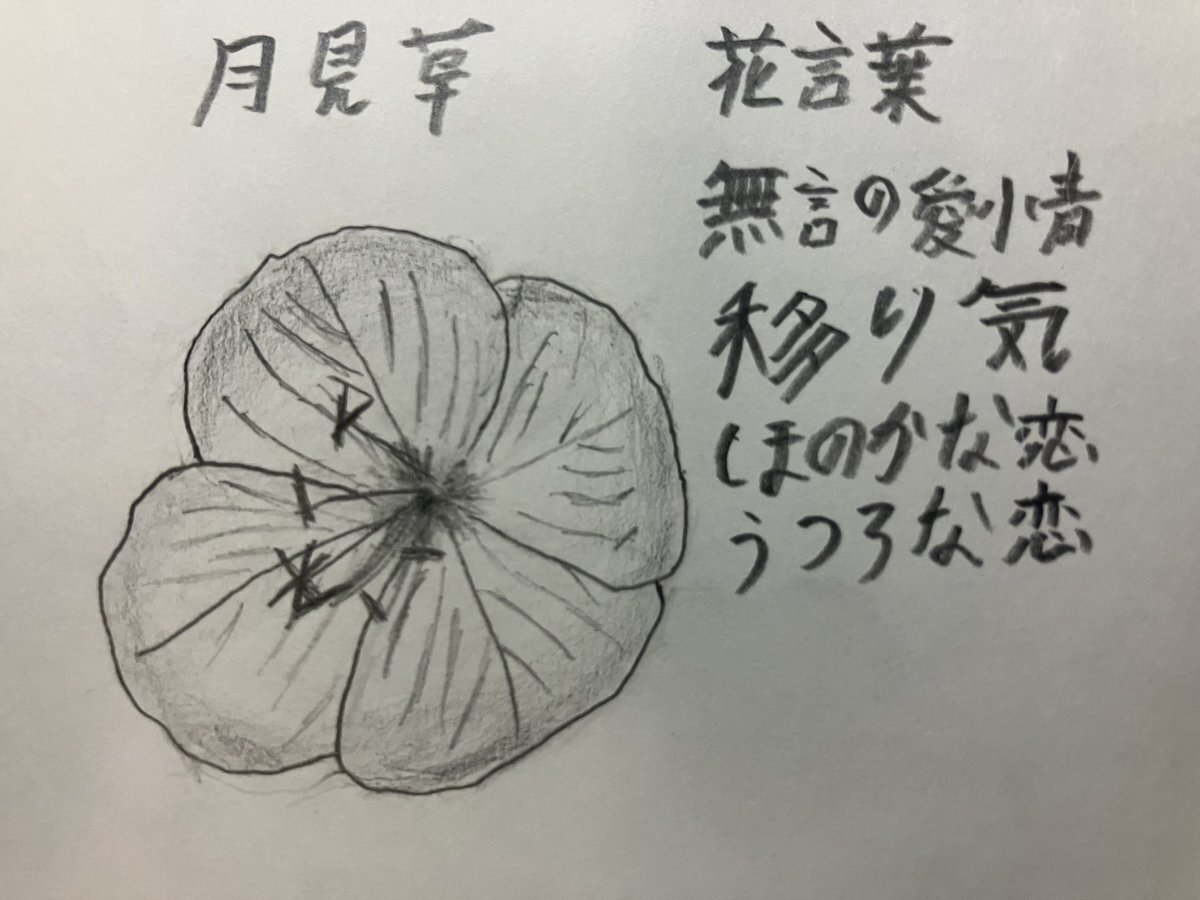 月見草
花言葉
無言の愛情
移り気
ほのかな恋
うつろな恋